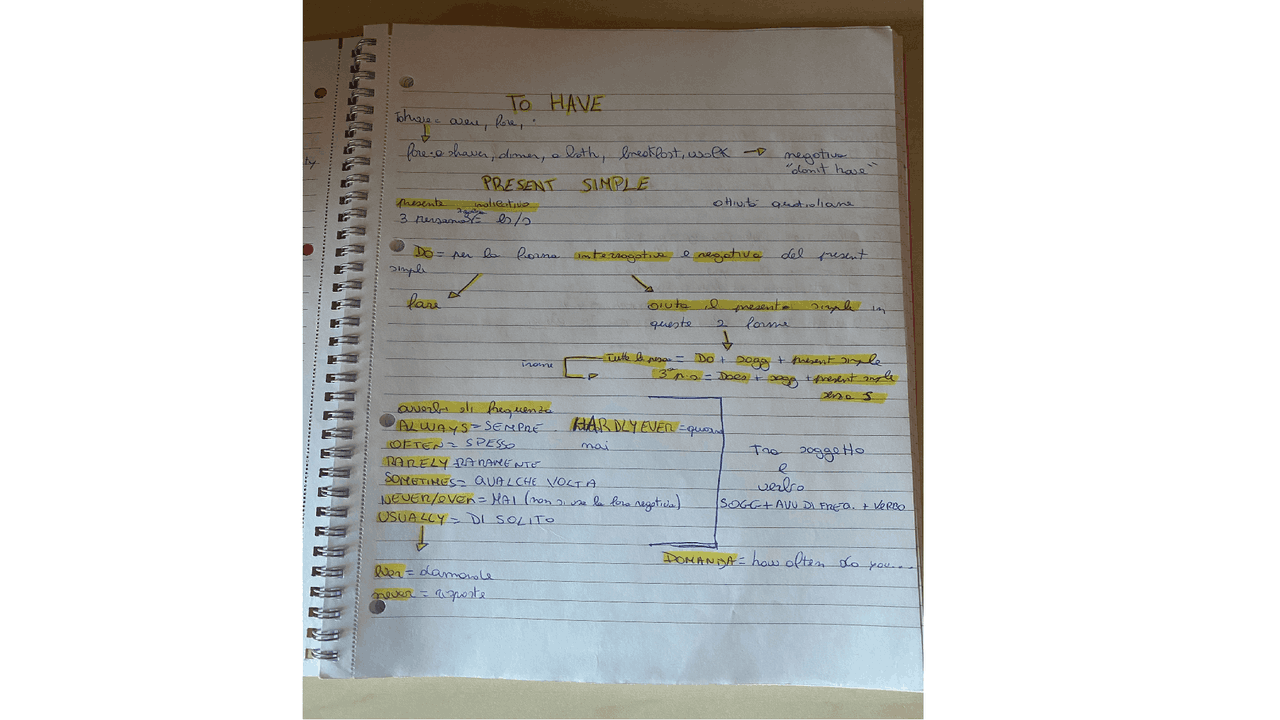 TO HAVE
To have = avere, fare,
fare: a shower, dinner, a bath, breakfast, walk → negativa
"don't have"
PRESENT SIMPLE
presente indicativo
attività quotidiane
3 persona es/s
DO = per la forma interrogativa e negativa del present
simple
fare
aiuta il presente simple in
queste 2 forme
Tutte le pers = DO + sogg + present simple
3ª p.s = Does + sogg + present simple
senza S
avverbi di frequenza
ALWAYS = SEMPRE HARDLY EVER = quasi
mai
OFTEN = SPESSO
RARELY RARAMENTE
SOMETIMES = QUALCHE VOLTA
NEVER/EVER = MAI (non si usa la forma negativa)
USUALLY = DI SOLITO
Tra soggetto
e
verbo
SOGG + AVV DI FREQ. + VERBO
DOMANDA = how often do you...
Ever = domande
never = risposte